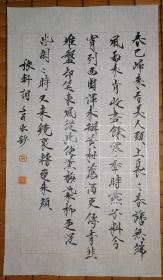 春已歸來看美人頭上裊々春幡無端
風雨未肯收盡餘寒年時燕子料今
宵到西園渾未辦黃柑薦酒更傳青韭
堆盤却笑東風從此便薰梅染柳更沒
些閑閑時又來鏡裏轉變朱顏
稼軒詞